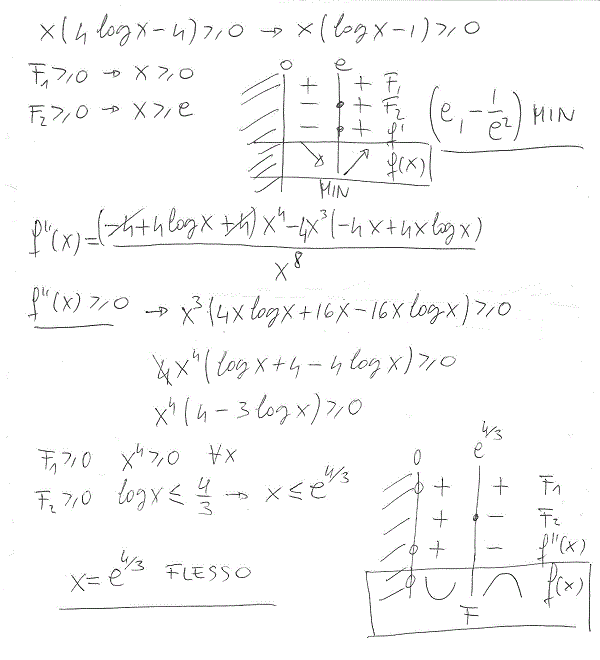 x(4 log x - 4) ⩾ 0 → x(log x - 1) ⩾ 0
F₁ ⩾ 0 → x ⩾ 0
F₂ ⩾ 0 → x ⩾ e
0 e
+ + F₁
- + F₂
- + f'
↘ ↗ f(x)
MIN
(e, -1/e²) MIN
f''(x) = ((-4 + 4 log x + 4) x⁴ - 4x³(-4x + 4x log x)) / x⁸
f''(x) ⩾ 0 → x³(4x log x + 16x - 16x log x) ⩾ 0
4x⁴(log x + 4 - 4 log x) ⩾ 0
x⁴(4 - 3 log x) ⩾ 0
F₁ ⩾ 0 x⁴ ⩾ 0 ∀x
F₂ ⩾ 0 log x ≤ 4/3 → x ≤ e^4/3
x = e^4/3 FLESSO
0 e^4/3
+ + F₁
+ - F₂
+ - f''(x)
∪ ∩ f(x)
F